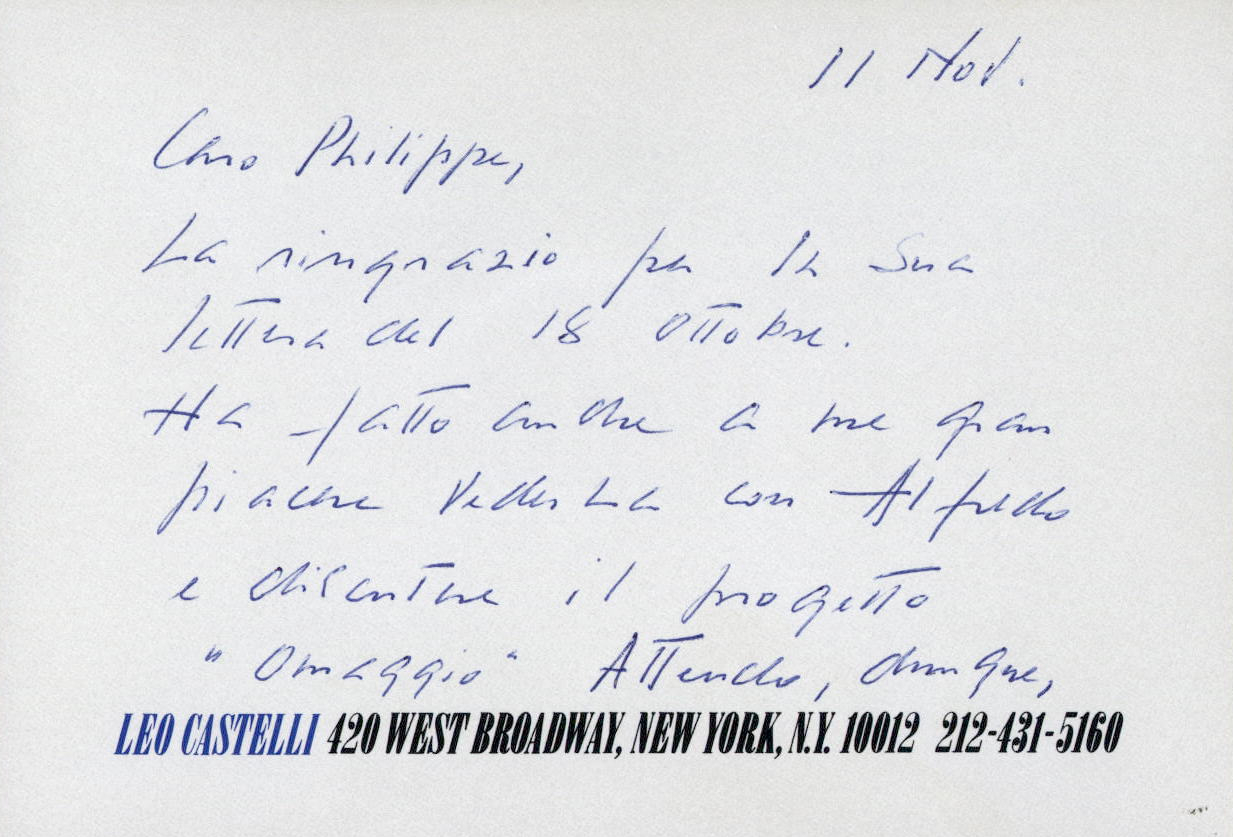 11 Nov.
Caro Philippe,
La ringrazio per la Sua
lettera del 18 Ottobre.
Ha fatto anche a me gran
piacere vederLa con Alfredo
e discutere il progetto
"Omaggio" Attendo, dunque,
LEO CASTELLI 420 WEST BROADWAY, NEW YORK, N.Y. 10012 212-431-5160